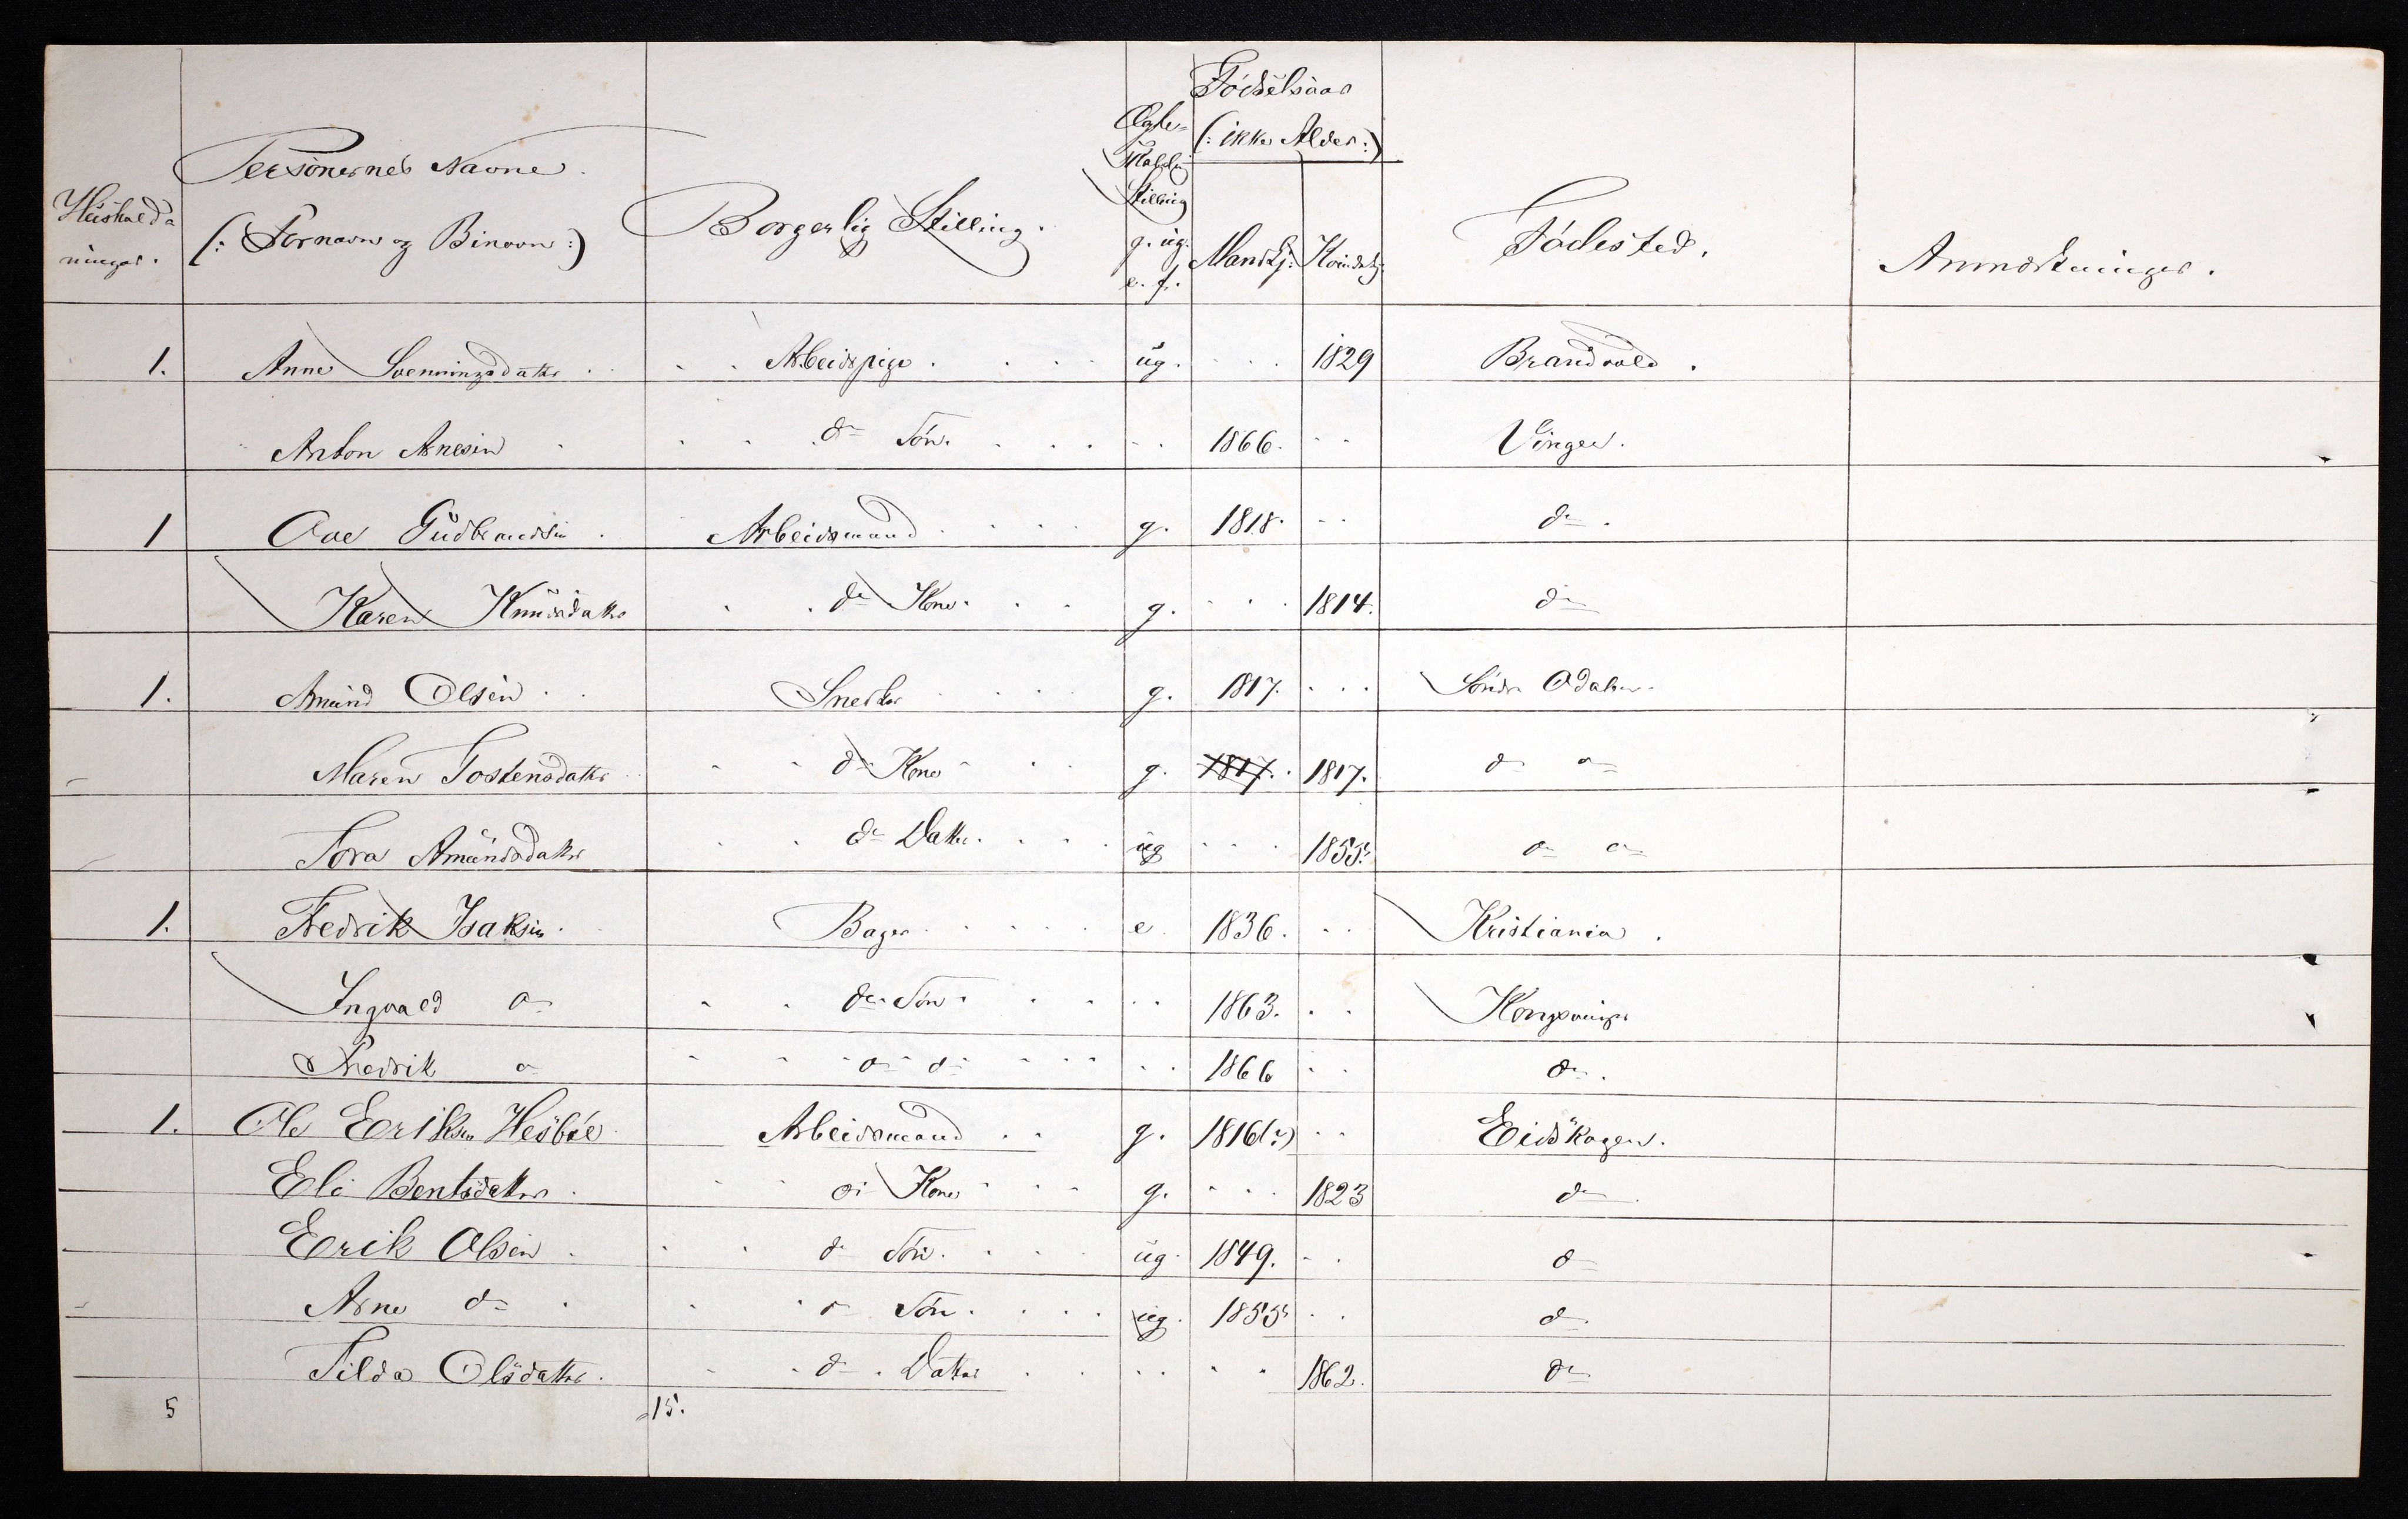 Hushold-
ninger.
Personernes Navne.
(: Fornavn og Binavn :)
Borgerlig Stilling.
Ægte-
skabelig
Stilling
g. ug.
e. f.
Födselsaar
(: ikke Alder :)
Mandkj: Kvindekj:
Födested.
Anmærkninger.
1. Anne Svenningsdatter Arbeidspige ug. 1829 Brandvold.
Anton Arnesen do Sön. 1866. Vinger.
1 Ove Gudbrandsen Arbeidsmand g. 1818. do.
Karen Knudsdatter do Kone. g. 1814. do
1. Amund Olsen Snedker g. 1817. Söndre Odalen.
Maren Tostensdatter do Kone g. 1817. 1817. do do
Tora Amundsdatter do Datter. ug 1855. do do
1. Fredrik Isaksen. Bager e. 1836. Kristiania.
Ingvald do do Sön 1863. Kongsvinger
Fredrik do do do 1866 do.
1. Ole Eriksen Hesböe Arbeidsmand g. 1816(?) Eidskogen.
Eli Bentsdatter do Kone g. 1823 do.
Erik Olsen do Sön. ug. 1849. do
Arne do do Sön. ug. 1855 do
Tilda Olsdatter. do Datter 1862. do
5 15.